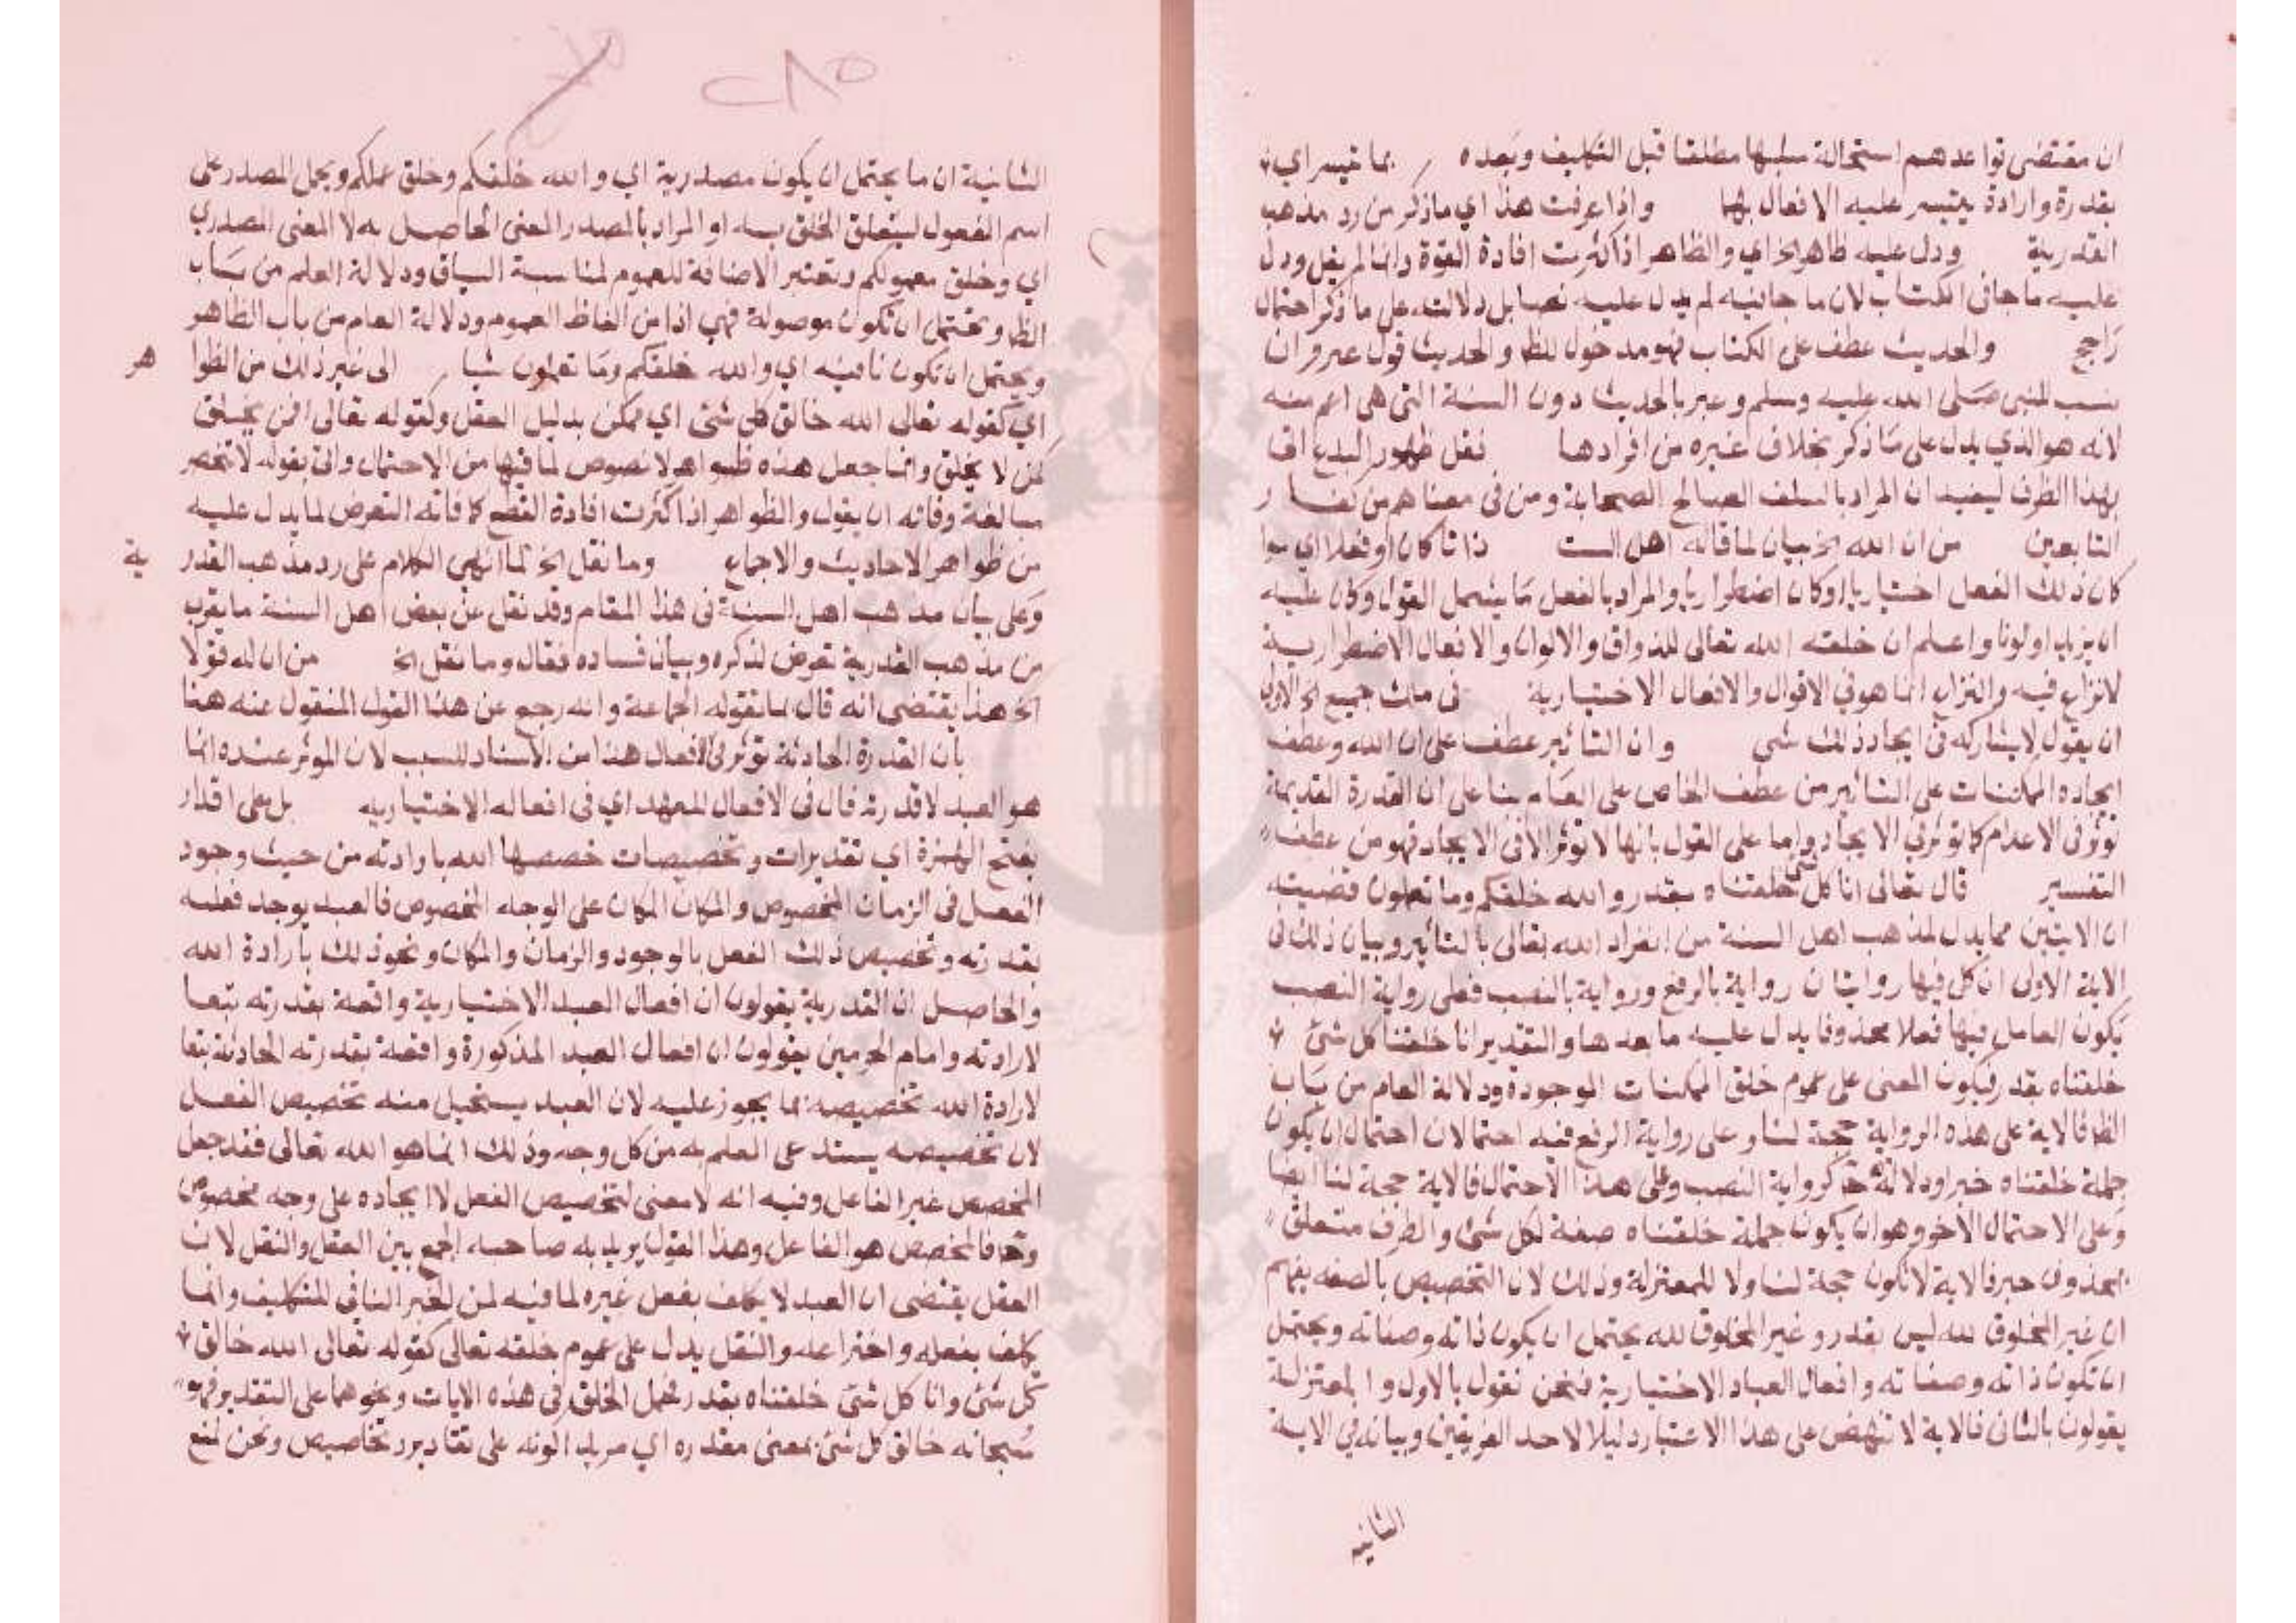 ان مقتضى قواعدهم استحالة سلبها مطلقا قبل التكليف وبعده بما تيسر اي
بقدرة وارادة يتيسر عليه الافعال بها واذا عرفت هذا اي ماذكر من رد مذهب
القدرية ودل عليه ظاهر الخ اي والظاهر اذا كثرت افادة القوة وانما لم يقل ودل
عليه ما جا في الكتاب لان ما جا فيه لم يدل عليه نصا بل دلالته على ما ذكر احتمال
راجح والحديث عطف على الكتاب فهو مدخول للظا والحديث قول
ينسب للنبي صلى الله عليه وسلم وعبر بالحديث دون السنة التي هي اعم منه
لانه هو الذي يدل على ما ذكر بخلاف غيره من افرادها قبل ظهور البدع اتى
بهذا الظرف ليفيد ان المراد بالسلف الصالح الصحابة ومن في معناهم من
التابعين من ان الله الخ بيان لما قاله اهل الست ذاتا كان او فعلا اي سوا
كان ذلك الفعل اختياريا او كان اضطراريا والمراد بالفعل ما يشمل القول وكان عليه
ان يزيد او لونا واعلم ان خلقه الله تعالى للذوات والالوان والافعال الاضطرارية
لا نزاع فيه والنزاع انما هو في الاقوال والافعال الاختيارية في ملك جميع الخ الاولى
ان يقول لا يشاركه في ايجاد ذلك شي وان التاثير عطف على ان الله وعطف
ايجاده الممكنات على التاثير من عطف الخاص على العام بنا على ان القدرة القديمة
توثر في الاعدام كما توثر في الايجاد واما على القول بانها لا توثر الا في الايجاد فهو من عطف
التفسير قال تعالى انا كل شي خلقناه بقدر والله خلقكم وما تعملون قضيته
ان الايتين مما يدل لمذهب اهل السنة من انفراد الله تعالى بالتاثير وبيان ذلك في
الاية الاولى ان كل فيها روايتان رواية بالرفع ورواية بالنصب فعلى رواية النصب
يكون العامل فيها فعلا محذوفا يدل عليه ما بعدها والتقدير انا خلقنا كل شئ
خلقناه بقدر فيكون المعنى على عموم خلق الممكنات الموجودة ودلالة العام من باب
الظا فالاية على هذه الرواية حجة لنا وعلى رواية الرفع فيه احتمالان احتمال ان يكون
جملة خلقناه خبرا ودلالته ح كرواية النصب وعلى هذا الاحتمال فالاية حجة لنا ايضا
وعلى الاحتمال الاخر وهو ان يكون جملة خلقناه صفة لكل شئ والظرف متعلق
بمحذوف خبر فالاية لا تكون حجة لنا ولا للمعتزلة وذلك لان التخصيص بالصفه يفهم
ان غير المخلوق لله ليس بقدر وغير المخلوق لله يحتمل ان يكون ذاته وصفاته ويحتمل
ان تكون ذاته وصفاته وافعال العباد الاختيارية فنحن نقول بالاول والمعتزلة
يقولون بالثاني فالاية لا تنهض على هذا الاعتبار دليلا لاحد الفريقين وبيانه في الاية
الثانيه
الثانية ان ما يحتمل ان يكون مصدرية اي والله خلقكم وخلق عملكم ويحمل المصدر على
اسم المفعول ليتعلق الخلق به او المراد بالمصدر المعنى الحاصل به لا المعنى المصدري
اي وخلق معمولكم وتعتبر الاضافة للعموم لمناسبة السياق ودلالة العلم من باب
الظا ويحتمل ان تكون موصولة فهي اذا من الفاظ العموم ودلالة العام من باب الظاهر
ويحتمل ان تكون نافيه اي والله خلقكم وما تعملون شيا الى غير ذلك من الظوا هر
اي كقوله تعالى الله خالق كل شئ اي ممكن بدليل العقل وكقوله تعالى افمن يخلق
كمن لا يخلق وانما جعل هذه ظواهر لا نصوص لما فيها من الاحتمال واتى بقوله لا تنحصر
مبالغة وفاته ان يقول والظواهر اذا كثرت افادة القطع كما فاته التعرض لما يدل عليه
من ظواهر الاحاديث والاجماع وما نقل الخ لما انهى الكلام على رد مذهب القدر ية
وعلى بيان مذهب اهل السنة في هذا المقام وقد نقل عن بعض اهل السنة ما يقرب
من مذهب القدرية تعرض لذكره وبيان فساده فقال وما نقل الخ من ان له قولا
الخ هذا يقتضي انه قال بما تقوله الجماعة وانه رجع عن هذا القول المنقول عنه هنا
بان القدرة الحادثة توثر في الافعال هذا من الاسناد للسبب لان الموثر عنده انما
هو العبد لا قدرته فال في الافعال للعهد اي في افعاله الاختياريه بل على اقدار
بفتح الهمزة اي تقديرات وتخصيصات خصصها الله بارادته من حيث وجود
الفعل في الزمان المخصوص والمكان المكان على الوجه المخصوص فالعبد يوجد فعله
بقدرته وتخصيص ذلك الفعل بالوجود والزمان والمكان ونحو ذلك بارادة الله
والحاصل ان القدرية يقولون ان افعال العبد الاختيارية واقعة بقدرته تبعا
لارادته وامام الحرمين يقولون ان افعال العبد المذكورة واقعة بقدرته الحادثة تبعا
لارادة الله تخصيصه بما يجوز عليه لان العبد يستحيل منه تخصيص الفعل
لان تخصيصه يستدعى العلم به من كل وجه وذلك انما هو الله تعالى فقد جعل
المخصص غير الفاعل وفيه انه لا معنى لتخصيص الفعل الا ايجاده على وجه مخصوص
وح فالمخصص هو الفاعل وهذا القول يريد به صاحبه الجمع بين العقل والنقل لان
العقل يقتضي ان العبد لا يكلف بفعل غيره لما فيه المتكليف وانما
يكلف بفعله واختراعه والنقل يدل على عموم خلقه تعالى كقوله تعالى الله خالق
كل شئ وانا كل شئ خلقناه بقدر فحمل الخلق في هذه الايات ونحوهما على التقدير فهو
سبحانه خالق كل شئ بمعنى مقدره اي مريد الونه على تقادير وتخاصيص ونحن نمنع